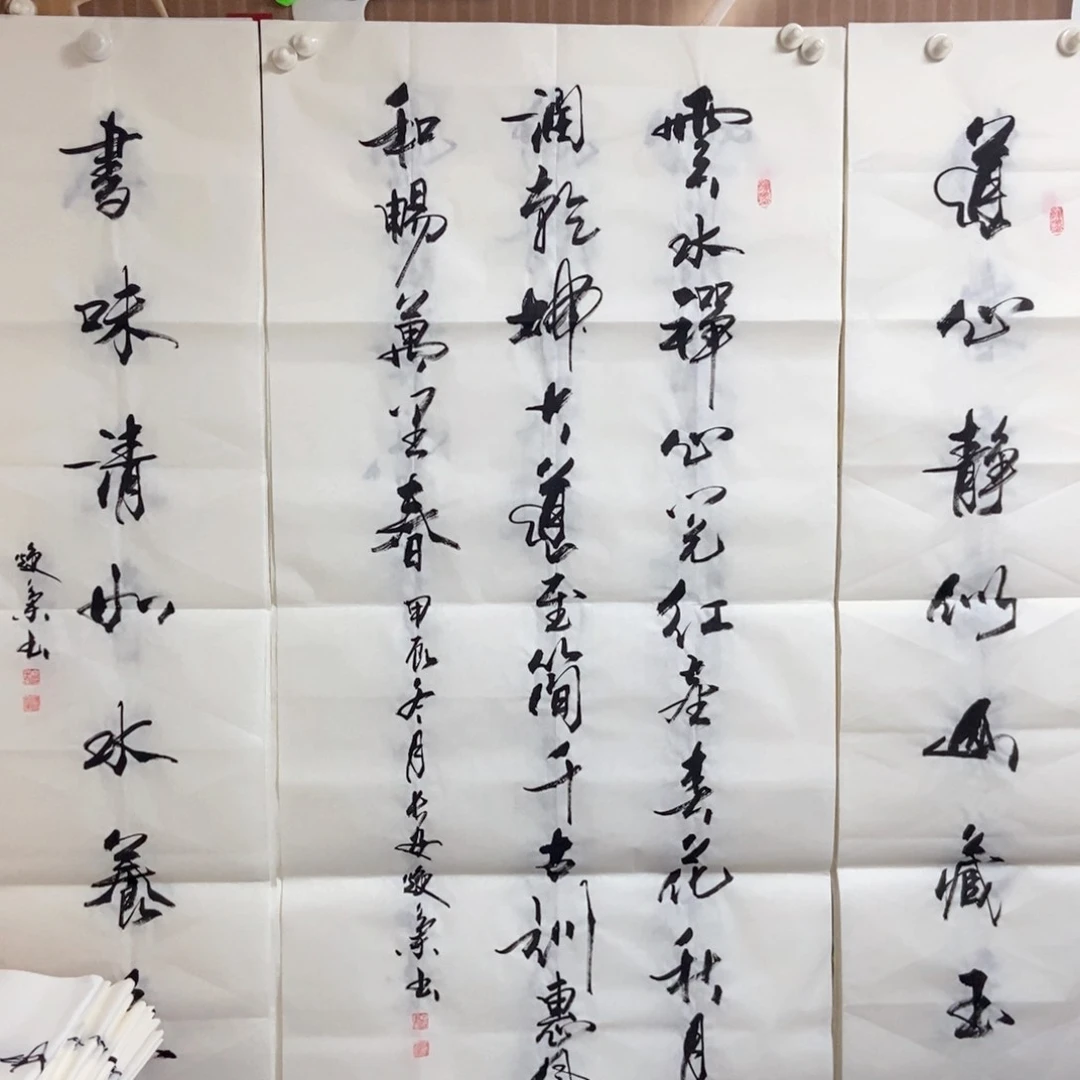 道心静似山藏玉
雲水禪心红塵春花秋月
潤乾坤大道至簡千古訓惠風
和暢萬里春甲辰冬月长安焕书
書味清如水養
焕书